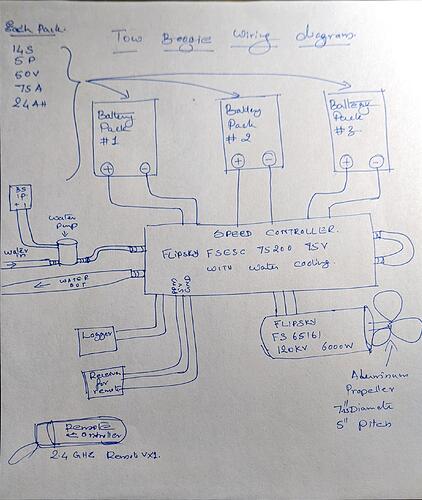 Tow Boogie wiring diagram
Each Pack
14S
5P
60V
75A
24AH
Battery Pack #1
Battery Pack #2
Battery Pack #3
+ -
+ -
+ -
3S
1P
+ -
Water
Pump
Water
in
WATER
OUT
SPEED CONTROLLER
FLIPSKY FSESC 75200 75V
WITH Water Cooling
GND
5V
Logger
Receiver for
remote
FLIPSKY
FS 65161
120KV 6000W
Aluminum
Propeller
Diameter
5" Pitch
Remote
Controller
2.4 GHz Remote VX1